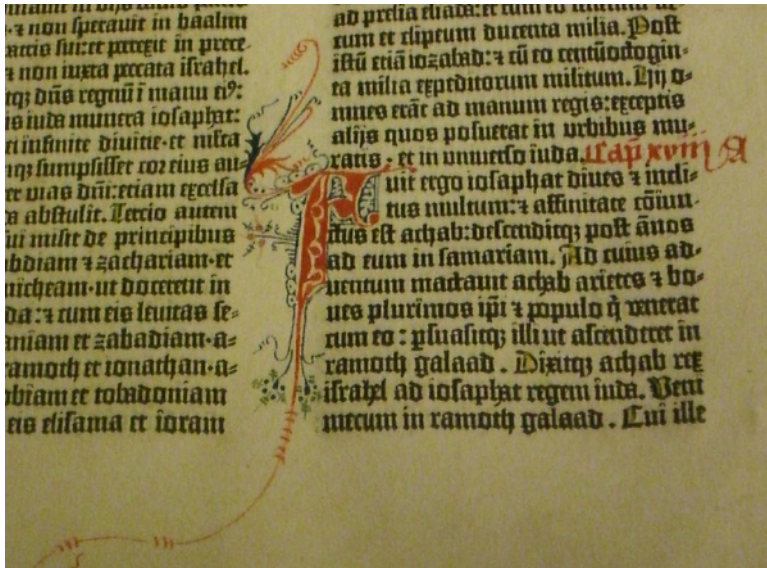 · ⁊ non sperauit in baalim
⁊ non iuxta peccata israhel.
itqꝫ dn̄s regnū ī manu eiꝰ:
is iuda munera iosaphat:
ti infinite diuitie·et multa
nqꝫ sumpsisset cor eius au⸗
er vias dn̄i:etiam excelsa
s abstulit. Tercio autem
sui misit de principibus
abdiam ⁊ zachariam·et
micheam·ut docerent in
da:⁊ cum eis leuitas se⸗
aniam et zabadiam·a⸗
ramoth et ionathan·a⸗
obiam et tobadoniam
eis elisama et ioram
ad prelia eliada:et cum eo
cum et clipeum ducenta milia. Post
istū etiā iozabad:⁊ cū eo centūoctogin⸗
ta milia expeditorum militum. Hij o⸗
mnes erāt ad manum regis:exceptis
alijs quos posuerat in urbibus mu⸗
ratis · et in uniuerso iuda. Cap̄ xviii A
Fuit ergo iosaphat diues ⁊ incli⸗
tus multum:⁊ affinitate cōiun⸗
ctus est achab:descenditqꝫ post ānos
ad eum in samariam. Ad cuius ad⸗
uentum mactauit achab arietes ⁊ bo⸗
ues plurimos ip̄i ⁊ populo q̄ venerat
cum eo : ꝑsuasitqꝫ illi ut ascenderet in
ramoth galaad . Dixitqꝫ achab rex
israhel ad iosaphat regem iuda. Veni
mecum in ramoth galaad . Cui ille